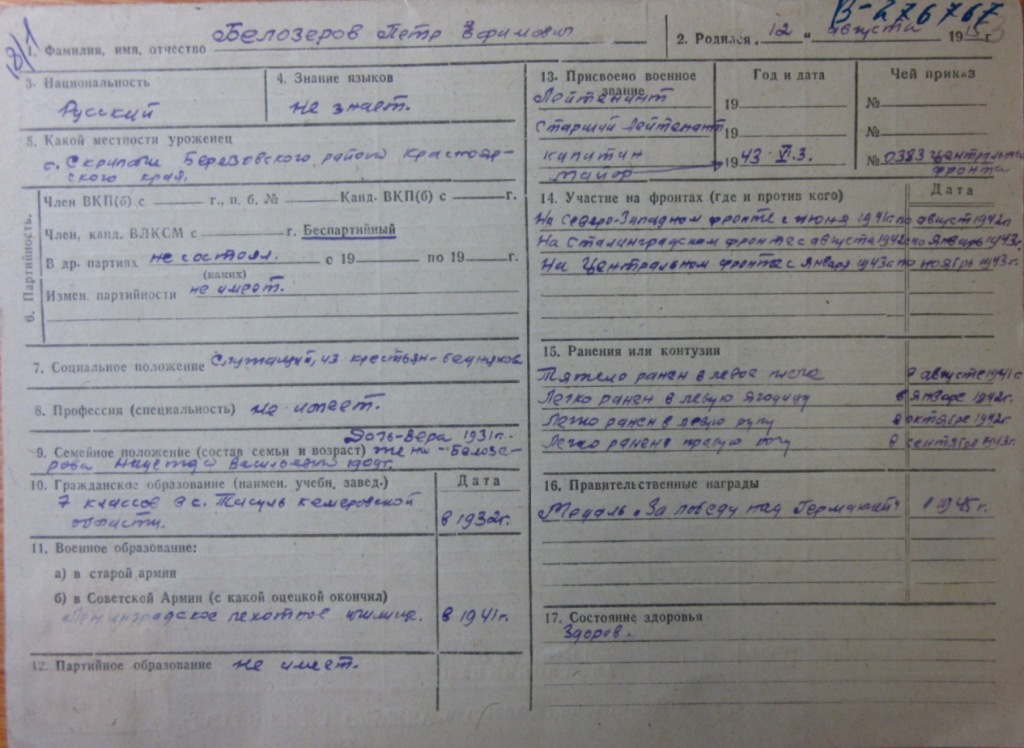 18/1
В-276767
1. Фамилия, имя, отчество Белозеров Петр Ефимович
2. Родился „12" августа 1915 г
3. Национальность
Русский
4. Знание языков
не знает.
5. Какой местности уроженец
с. Скрипачи Березовского района Красноярского края.
6. Партийность.
Член ВКП(б) с г., п. б. № Канд. ВКП(б) с г.
Член, канд. ВЛКСМ с г. Беспартийный
В др. партиях не состоял. с 19 по 19 г.
(каких)
Измен. партийности не имеет.
7. Социальное положение Служащий, из крестьян-бедняков
8. Профессия (специальность) не имеет.
Дочь-Вера 1931г.
9. Семейное положение (состав семьи и возраст) жена - Белозе-
рова Васильевна 1909г.
10. Гражданское образование (наимен. учебн, завед.)
Дата
7 классов в с. Тисуль Кемеровской
области.
в 1932г.
11. Военное образование:
а) в старой армии
б) в Советской Армии (с какой оцецкой окончил)
Ленинградское пехотное училище.
в 1941г.
12. Партийное образование не имеет.
13. Присвоено военное звание
Год и дата
Чей приказ
Лейтенант 19 №
Старший Лейтенант 19 №
Капитан 1943 VI.3. № 0383 Центрального
Майор фронта
14. Участие на фронтах (где и против кого)
Дата
На Северо-Западном фронте с июня 1941г. по август 1942г.
На Сталинградском фронте с августа 1942 по январь 1943г.
На Центральном фронте с января 1943г. по ноябрь 1943г.
15. Ранения или контузии
Тяжело ранен в левое плечо в августе 1941г.
Легко ранен в левую ягодицу в январе 1942г.
Легко ранен в левую руку в октябре 1942г.
Легко ранен в правую ногу в сентябре 1943г.
16. Правительственные награды
Медаль „За победу над Германией" в 1945г.
17. Состояние здоровья
Здоров.